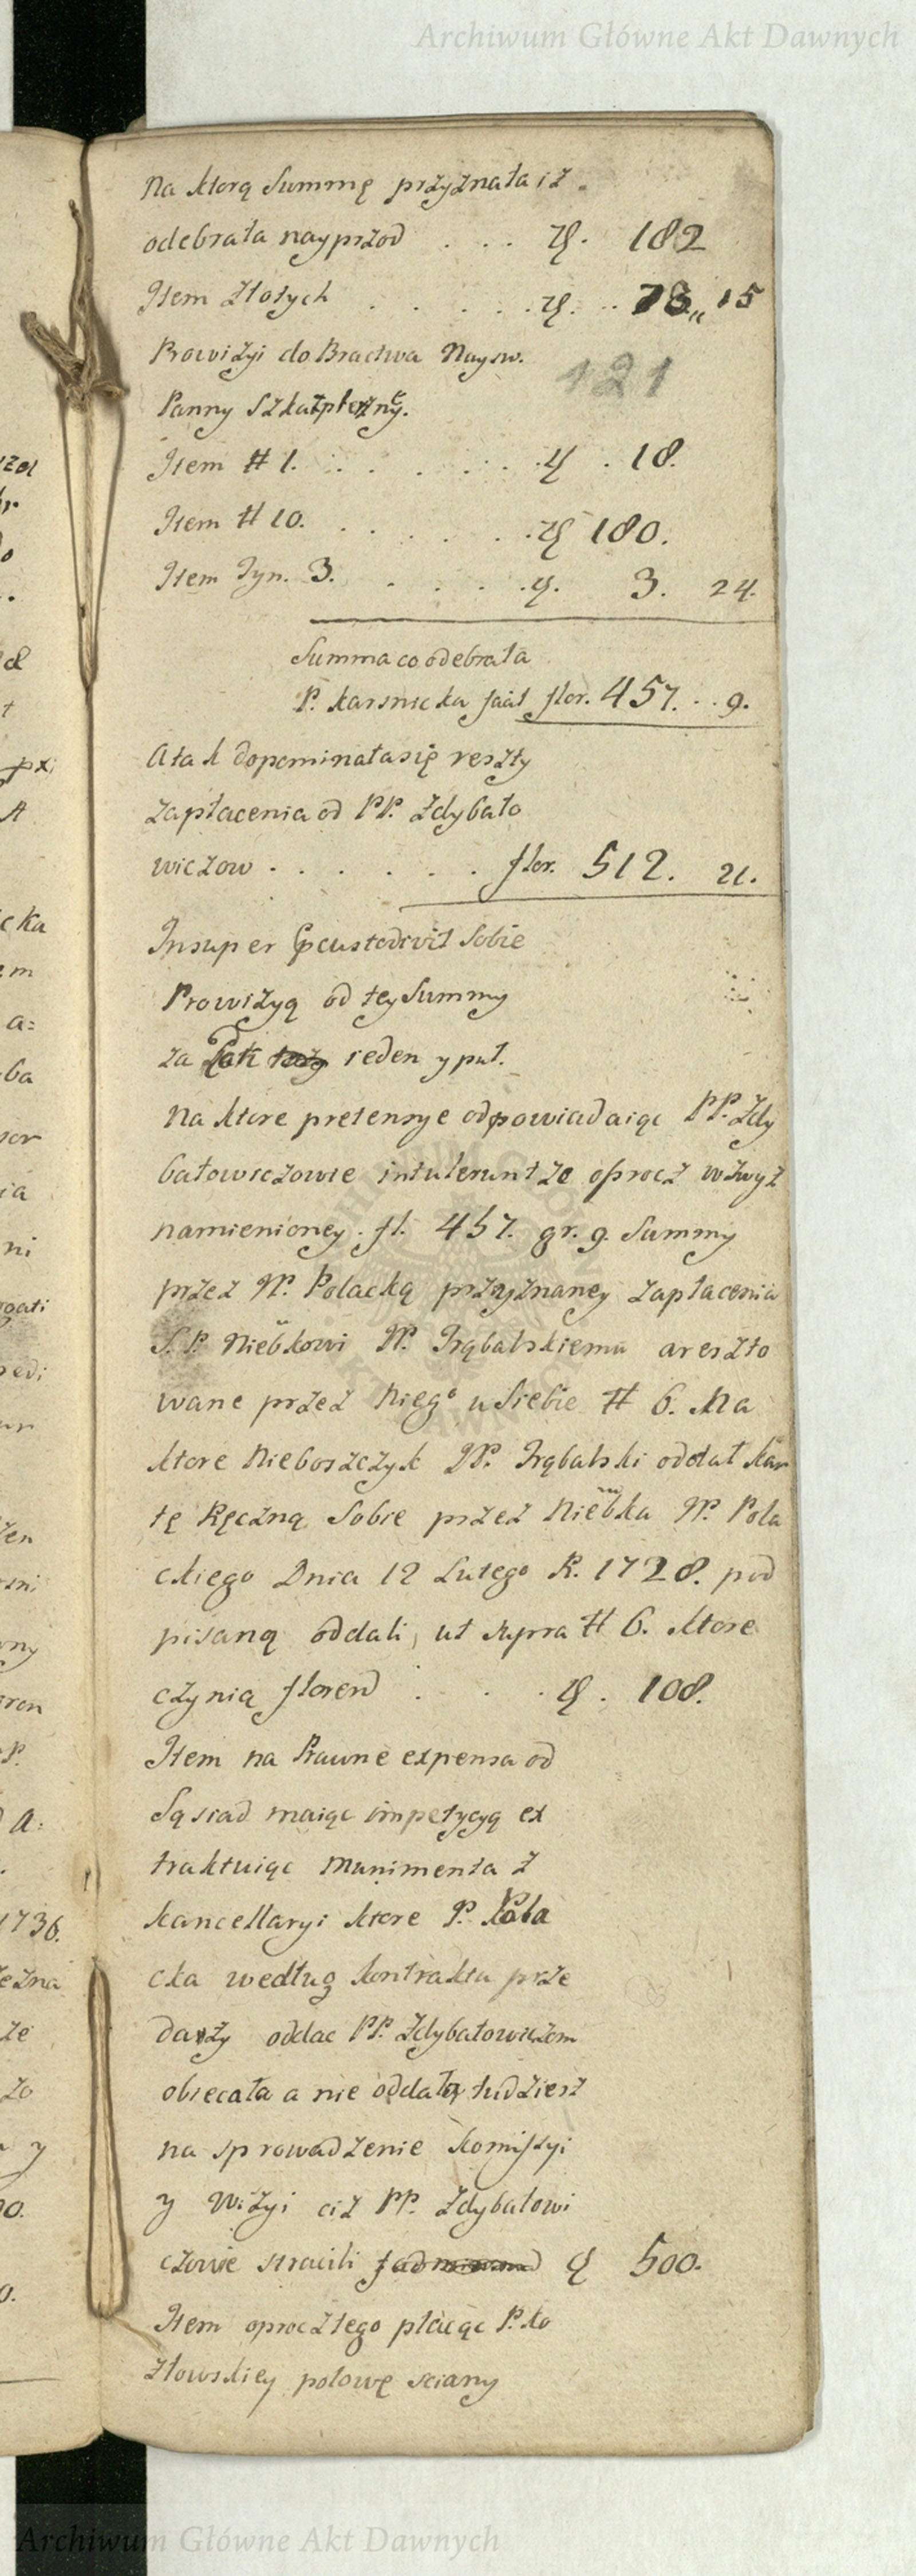 Archiwum Główne Akt Dawnych
Na ktorą Summę przyznała iż
odebrała nayprzod . . . zł. 182
Item złotych . . . . . zł. 73,, 15
Prowizyi do Bractwa Nayśw. 121
Panny Szkaplerzny.
Item # 1. . . . . . . zł . 18.
Item # 10. . . . . . zł 180.
Item Tyn. 3. . . . . zł. 3. 24.
Summa co odebrała
P. Karsnicka facit flor. 457. . . 9.
A tak dopominała się reszty
zapłacenia od PP. Zdybało
wiczow . . . . . . flor. 512. 21.
Insuper custodivit Sobie
Prowizyą od tey Summy
za Rok ieden y puł.
Na ktore pretensye odpowiadaiąc PP. Zdy
bałowiczowie intulerunt że oprocz wzwyż
namienioney fl. 457. gr. 9. Summy
przez JP. Polacką przyznaney zapłacenia
S. P. Niebkowi JP. Trąbalskiemu areszto
wane przez Niego u Siebie # 6. Na
ktore Nieboszczyk JP. Trąbalski oddał kar
tę Ręczną Sobie przez Niebka JP. Pola
ckiego Dnia 12 Lutego R. 1728. pod
pisaną oddali, ut supra # 6. ktore
czynią floren . . . zł . 108.
Item na Prawne expensa od
Sąsiad maiąc impetycyą ex
traktuiąc munimenta z
kancellaryi ktore P. Pola
cka według kontraktu prze
daży oddac PP. Zdybałowiczom
obiecała a nie oddała tudziesz
na sprowadzenie Komiszyi
y Wizyi ciż PP. Zdybałowi
czowie stracili zł 500.
Item oprocz tego płacąc P. Ko
złowskiey połowę sciany
Archiwum Główne Akt Dawnych